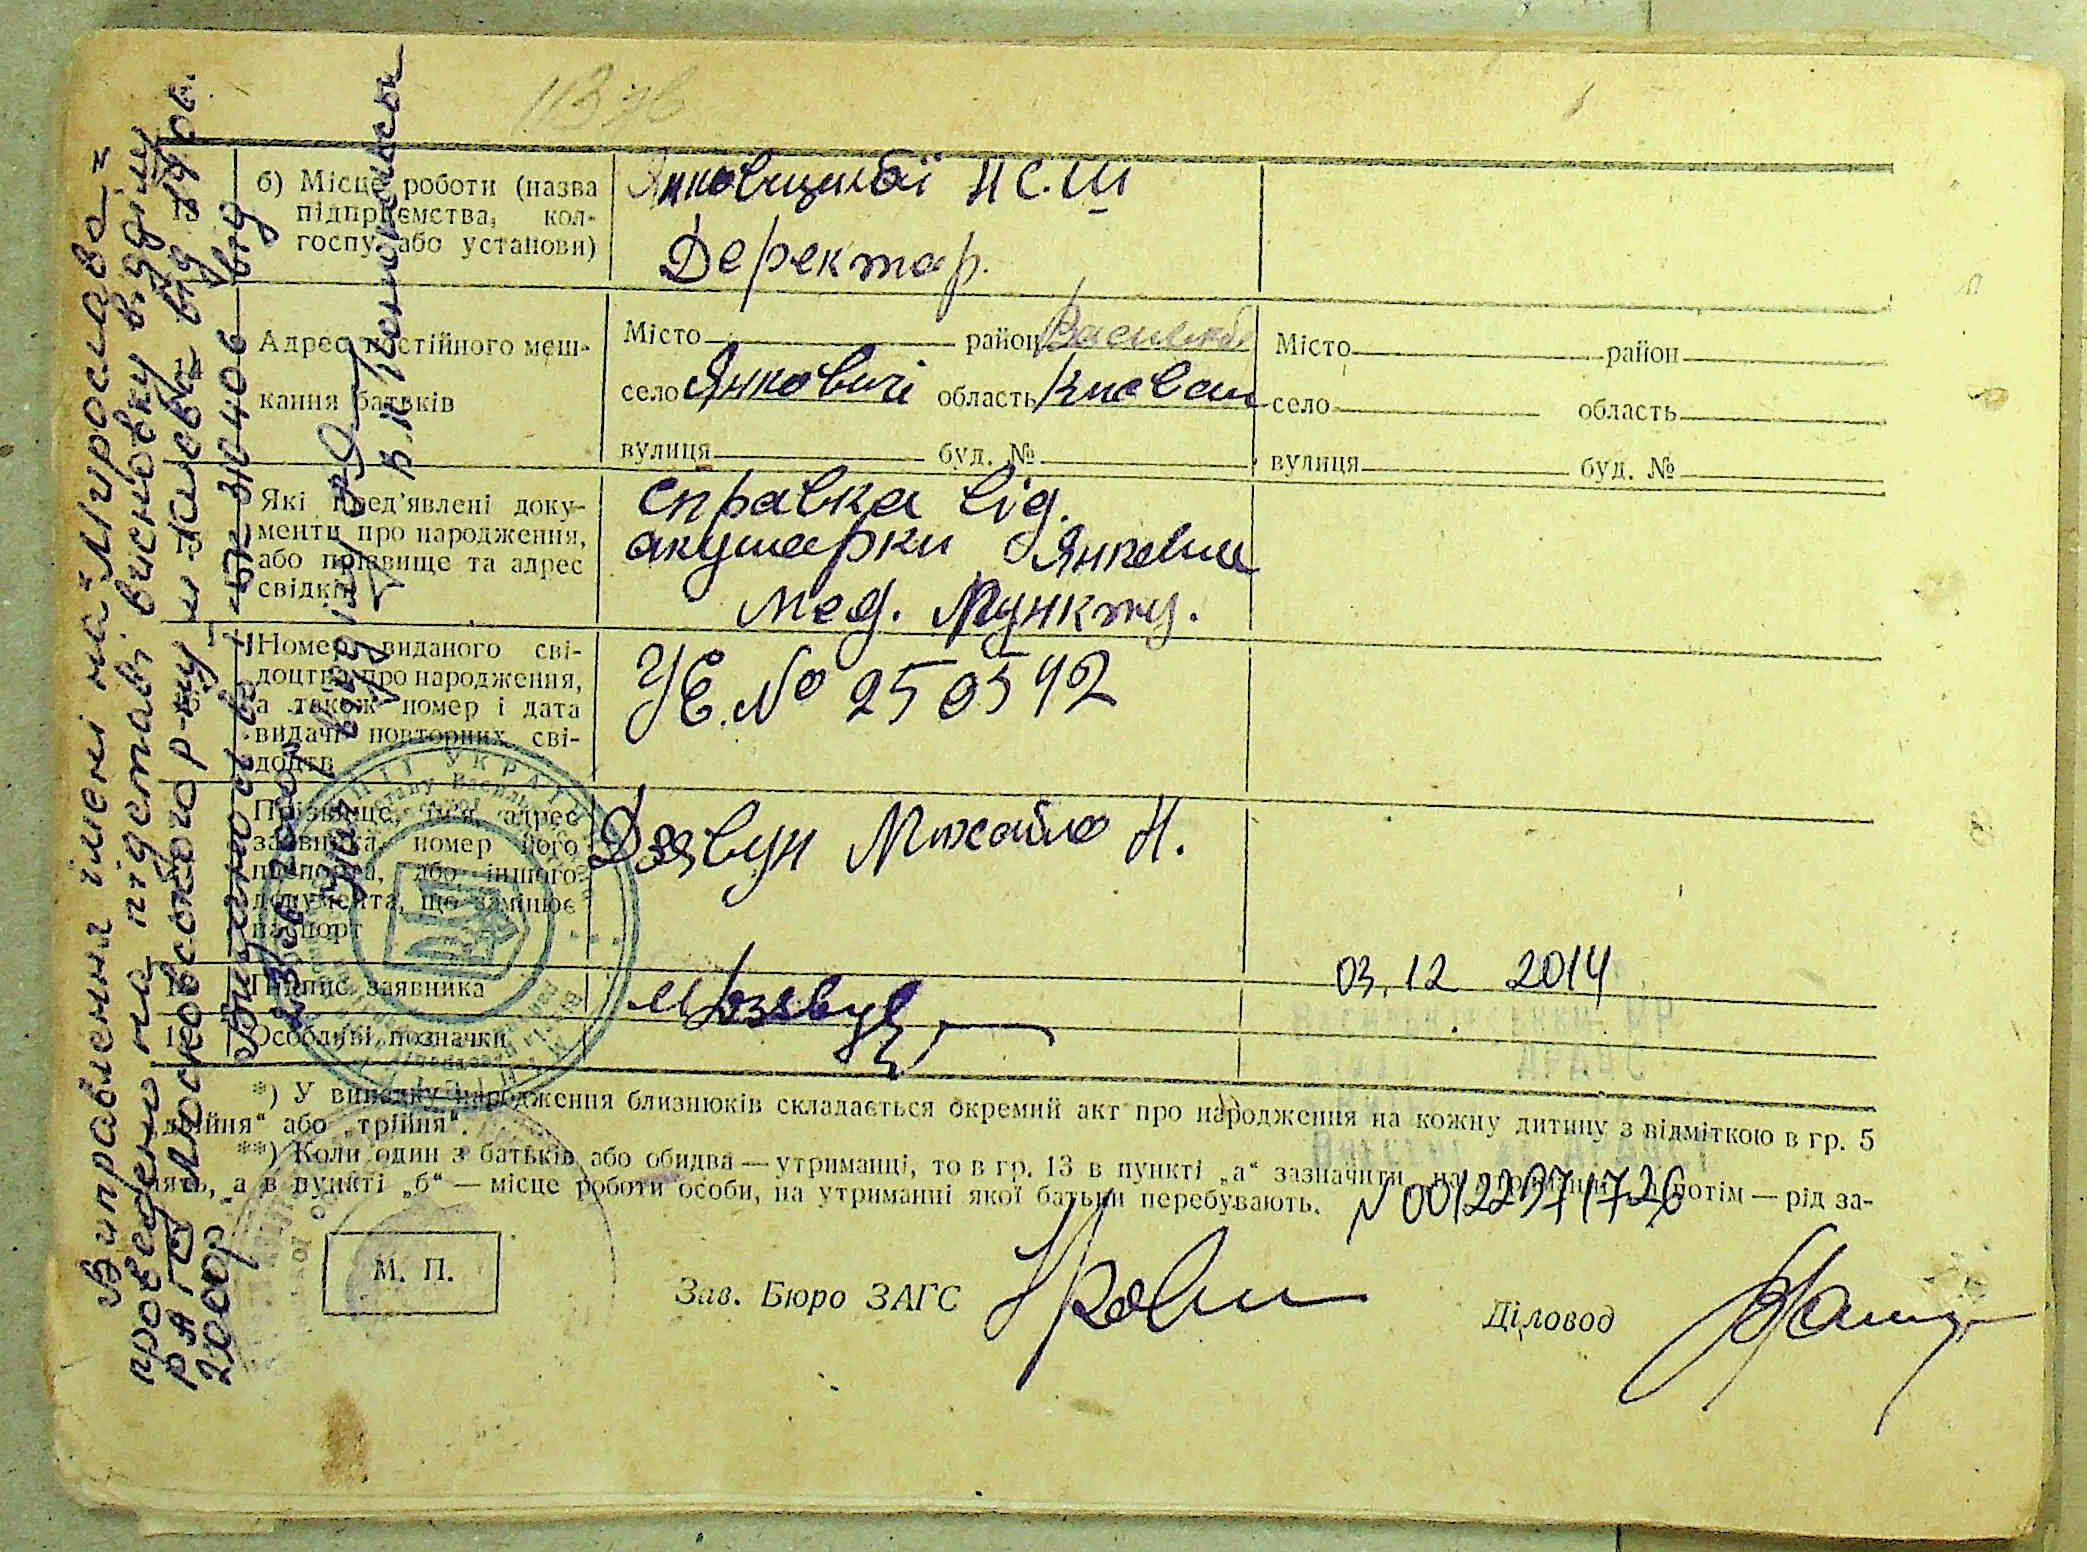 113 зв
б) Місце роботи (назва
13 підприємства, кол-
госпу або установи)
Янковицької НС.Ш
Деректар.
Адрес постійного меш-
кання батьків
Місто район Васильків
село Янковичі область Києвсь
вулиця буд. №
Місто район
село область
вулиця буд. №
Які пред'явлені доку-
менти про народження,
або прізвище та адрес
свідків
справка від.
акушарки Янкевиц
мед. Пункту.
Номер виданого сві-
доцтва про народження,
а також номер і дата
видачі повторних сві-
доцтв
УЄ. № 250542
Прізвище, ім'я, адрес
заявника, номер його
паспорта, або іншого
документа, що замінює
паспорт
Дзявун Михайло Н.
Підпис заявника
МДзявун
03.12 2014
Особливі позначки
*) У випадку народження близнюків складається окремий акт про народження на кожну дитину з відміткою в гр. 5
„двійня“ або „трійня“.
**) Коли один з батьків або обидва — утриманці, то в гр. 13 в пункті „а“ зазначити на утриманні, а потім — рід за-
нять, а в пункті „б“ — місце роботи особи, на утриманні якої батьки перебувають.
N 00122971726
М. П.
Зав. Бюро ЗАГС
Діловод
Виправлення імені на "Мирослава"
проведено на підставі висновку відділу
РАГС Московського р-ну м. Києва від 14 06.
2000р.
Видано св. 30406 від